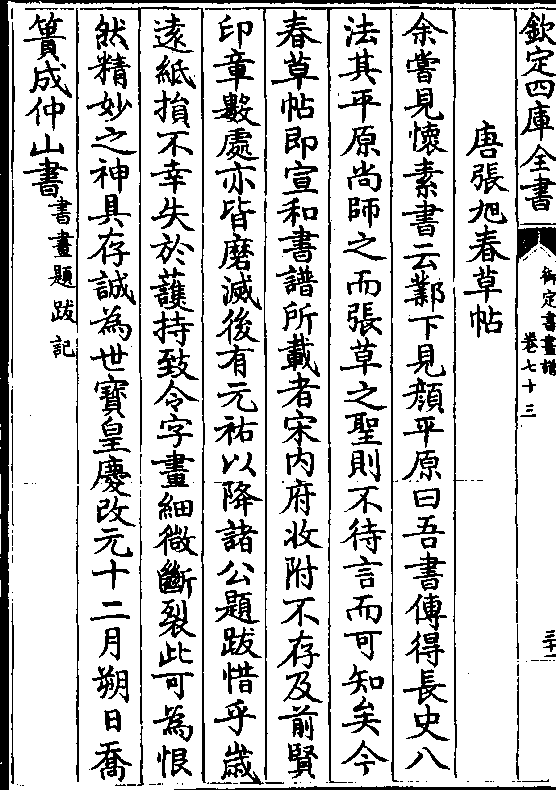 欽定四庫全書
御定書畫譜
卷七十三
唐張旭春草帖
余嘗見懷素書云鄴下見顔平原曰吾書傳得長史八
法其平原尚師之而張草之聖則不待言而可知矣今
春草帖即宣和書譜所載者宋内府收附不存及前賢
印章數處亦皆磨滅後有元祐以降諸公題跋惜乎嵗
逺紙損不幸失於䕶持致令字畫細㣲斷裂此可為恨
然精妙之神具存誠為世寳皇慶改元十二月朔日喬
簣成仲山書書畫題跋記